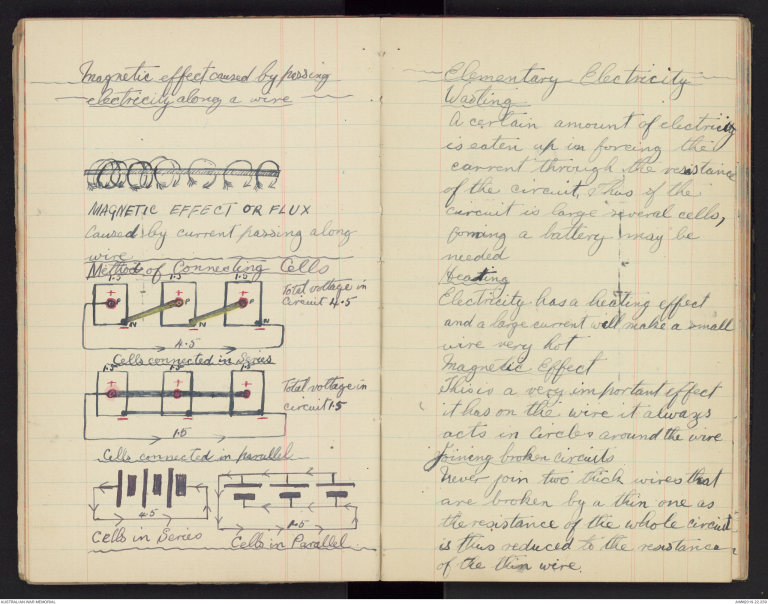 Magnetic effect caused by passing
electricity along a wire
MAGNETIC EFFECT OR FLUX
Caused by current passing along
wire
Method of Connecting Cells
1.5 1.5 1.5
+ + +
P P P
N N N
Total voltage in
Circuit 4.5
4.5
Cells connected in Series
1.5 1.5 1.5
+ + +
Total voltage in
circuit 1.5
1.5
Cells connected in parallel
4.5
1.5
Cells in Series
Cells in Parallel
Elementary Electricity
Wasting
A certain amount of electricity
is eaten up in forcing the
current through the resistance
of the circuit, Thus if the
circuit is large several cells,
forming a battery may be
needed
Heating
Electricity has a heating effect
and a large current will make a small
wire very hot
Magnetic Effect
This is a very important effect
it has on the wire it always
acts in Circles around the wire
Joining broken circuits
Never join two thick wires that
are broken by a thin one as
the resistance of the whole circuit
is thus reduced to the resistance
of the thin wire.
AUSTRALIAN WAR MEMORIAL